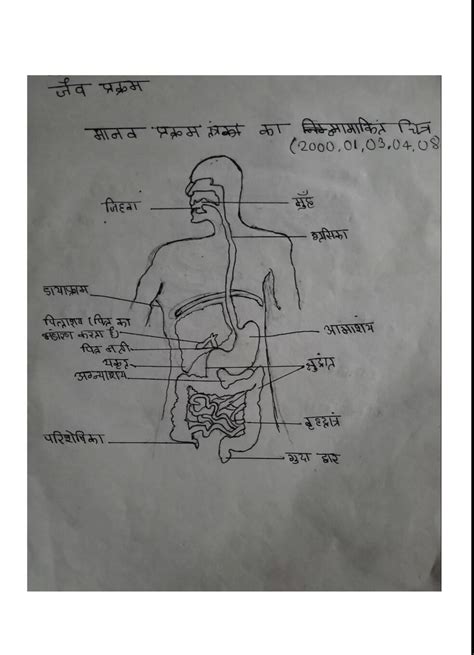 जैव प्रक्रम
मानव प्रक्रम तंत्र का चित्र
(2000,01,03,04,08
जिहवा
मुँह
ग्रसिका
डायाफ्राम
पित्ताशय (पित्त का
भंडारण करता है)
पित्त नली
यकृत
अग्न्याशय
आमाशय
क्षुद्रांत्र
बृहद्रांत्र
परिशेषिका
गुदा द्वार